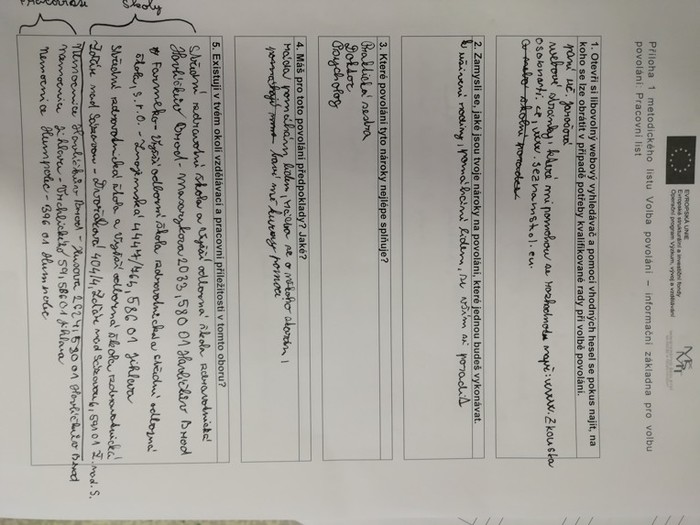 EVROPSKÁ UNIE
Evropské strukturální a investiční fondy
Operační program Výzkum, vývoj a vzdělávání
Příloha 1 metodického listu Volba povolání – informační základna pro volbu
povolání: Pracovní list
1. Otevři si libovolný webový vyhledávač a pomocí vhodných hesel se pokus najít, na
koho se lze obrátit v případě potřeby kvalifikované rady při volbě povolání.
webové stránky, které mi pomohou se rozhodnout např.: www.zkousta
osobnosti.cz, www.seznamskol.eu
2. Zamysli se, jaké jsou tvoje nároky na povolání, které jednou budeš vykonávat.
rodiny, pomáhání lidem, se vším si poradit
3. Které povolání tyto nároky nejlépe splňuje?
Praktická sestra
Doktor
Psycholog
4. Máš pro toto povolání předpoklady? Jaké?
Ráda pomáhám lidem, ráda se o někoho starám,
baví mě kurzy pomoci
5. Existují v tvém okolí vzdělávací a pracovní příležitosti v tomto oboru?
Školy
Střední zdravotnická škola a Vyšší odborná škola zdravotnická
Havlíčkův Brod - Masarykova 2033, 580 01 Havlíčkův Brod
Farmeko - Vyšší odborná škola zdravotnická a střední odborná
škola, s.r.o. - Znojemská 76, 586 01 Jihlava
Střední zdravotnická škola a Vyšší odborná škola zdravotnická
Žďár nad Sázavou - Dvořákova 404/4, Žďár nad Sázavou 6, 591 01 Ž. nad S.
Pracoviště
Nemocnice Havlíčkův Brod - Husova 2624, 580 01 Havlíčkův Brod
nemocnice Jihlava - Vrchlického 59, 586 01 Jihlava
nemocnice Humpolec - 396 01 Humpolec